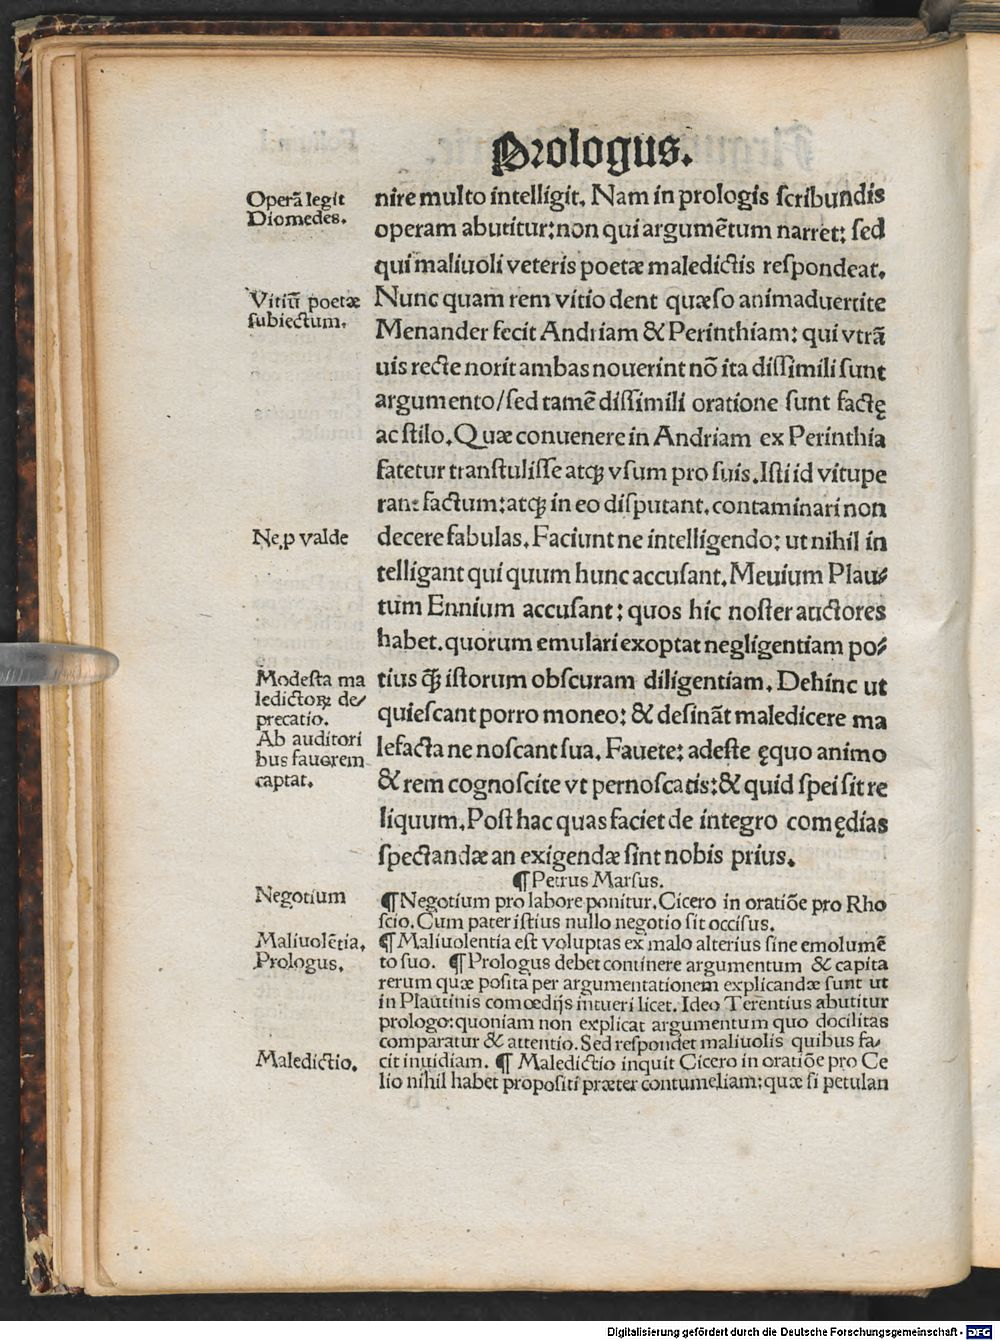 Prologus.
Operā legit
Diomedes.
nire multo intelligit. Nam in prologis scribundis
operam abutitur: non qui argumētum narret: sed
qui maliuoli veteris poetæ maledictis respondeat.
Vitiū poetæ
subiectum.
Nunc quam rem vitio dent quæso animaduertite
Menander fecit Andriam & Perinthiam: qui vtrā
uis recte norit ambas nouerint nō ita dissimili sunt
argumento/sed tamē dissimili oratione sunt factę
ac stilo. Quæ conuenere in Andriam ex Perinthia
fatetur transtulisse atqꝫ vsum pro suis. Isti id vitupe
rant factum: atqꝫ in eo disputant. contaminari non
Ne.p valde
decere fabulas. Faciunt ne intelligendo: ut nihil in
telligant qui quum hunc accusant. Meuium Plau⸗
tum Ennium accusant: quos hic noster auctores
habet. quorum emulari exoptat negligentiam po⸗
Modesta ma
ledictoꝝ de/
precatio.
Ab auditori
bus fauorem
captat.
tius qꝫ istorum obscuram diligentiam. Dehinc ut
quiescant porro moneo: & desināt maledicere ma
lefacta ne noscant sua. Fauete: adeste ęquo animo
& rem cognoscite vt pernoscatis: & quid spei sit re
liquum. Post hac quas faciet de integro comędias
spectandæ an exigendæ sint nobis prius.
¶ Petrus Marsus.
Negotium
¶ Negotium pro labore ponitur. Cicero in oratiōe pro Rho
scio. Cum pater istius nullo negotio sit occisus.
Maliuolētia.
Prologus.
¶ Maliuolentia est voluptas ex malo alterius sine emolumē
to suo. ¶ Prologus debet continere argumentum & capita
rerum quæ posita per argumentationem explicandæ sunt ut
in Plautinis comœdijs intueri licet. Ideo Terentius abutitur
prologo: quoniam non explicat argumentum quo docilitas
comparatur & attentio. Sed respondet maliuolis quibus fa/
Maledictio.
cit inuidiam. ¶ Maledictio inquit Cicero in oratiōe pro Ce
lio nihil habet propositi præter contumeliam: quæ si petulan
Digitalisierung gefördert durch die Deutsche Forschungsgemeinschaft - DFG